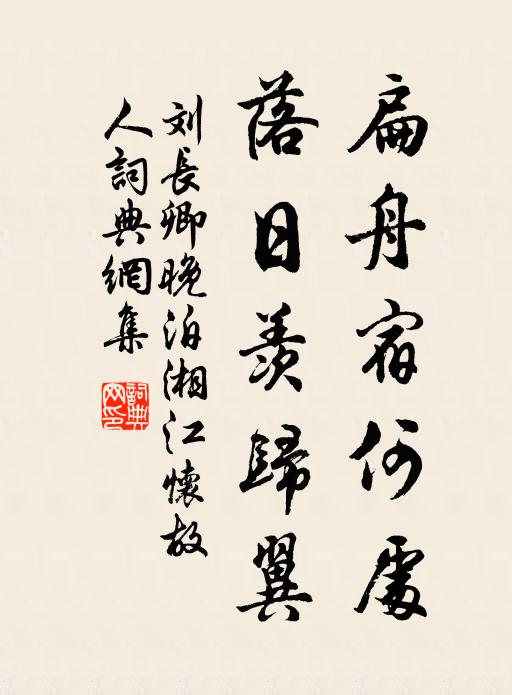 扁舟宿何處
落日羨歸翼
刘長卿晚泊湘江懷故
人詞典網集
詞典
网印